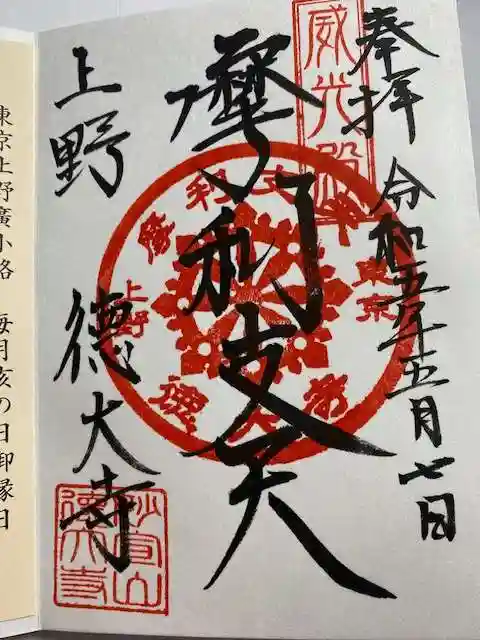 奉拝
令和五年五月七日
威光殿
摩利支天
摩利支天
東京
上野
上野
徳大寺
妙宣山
徳大寺
東京上野廣小路 毎月亥の日御縁日